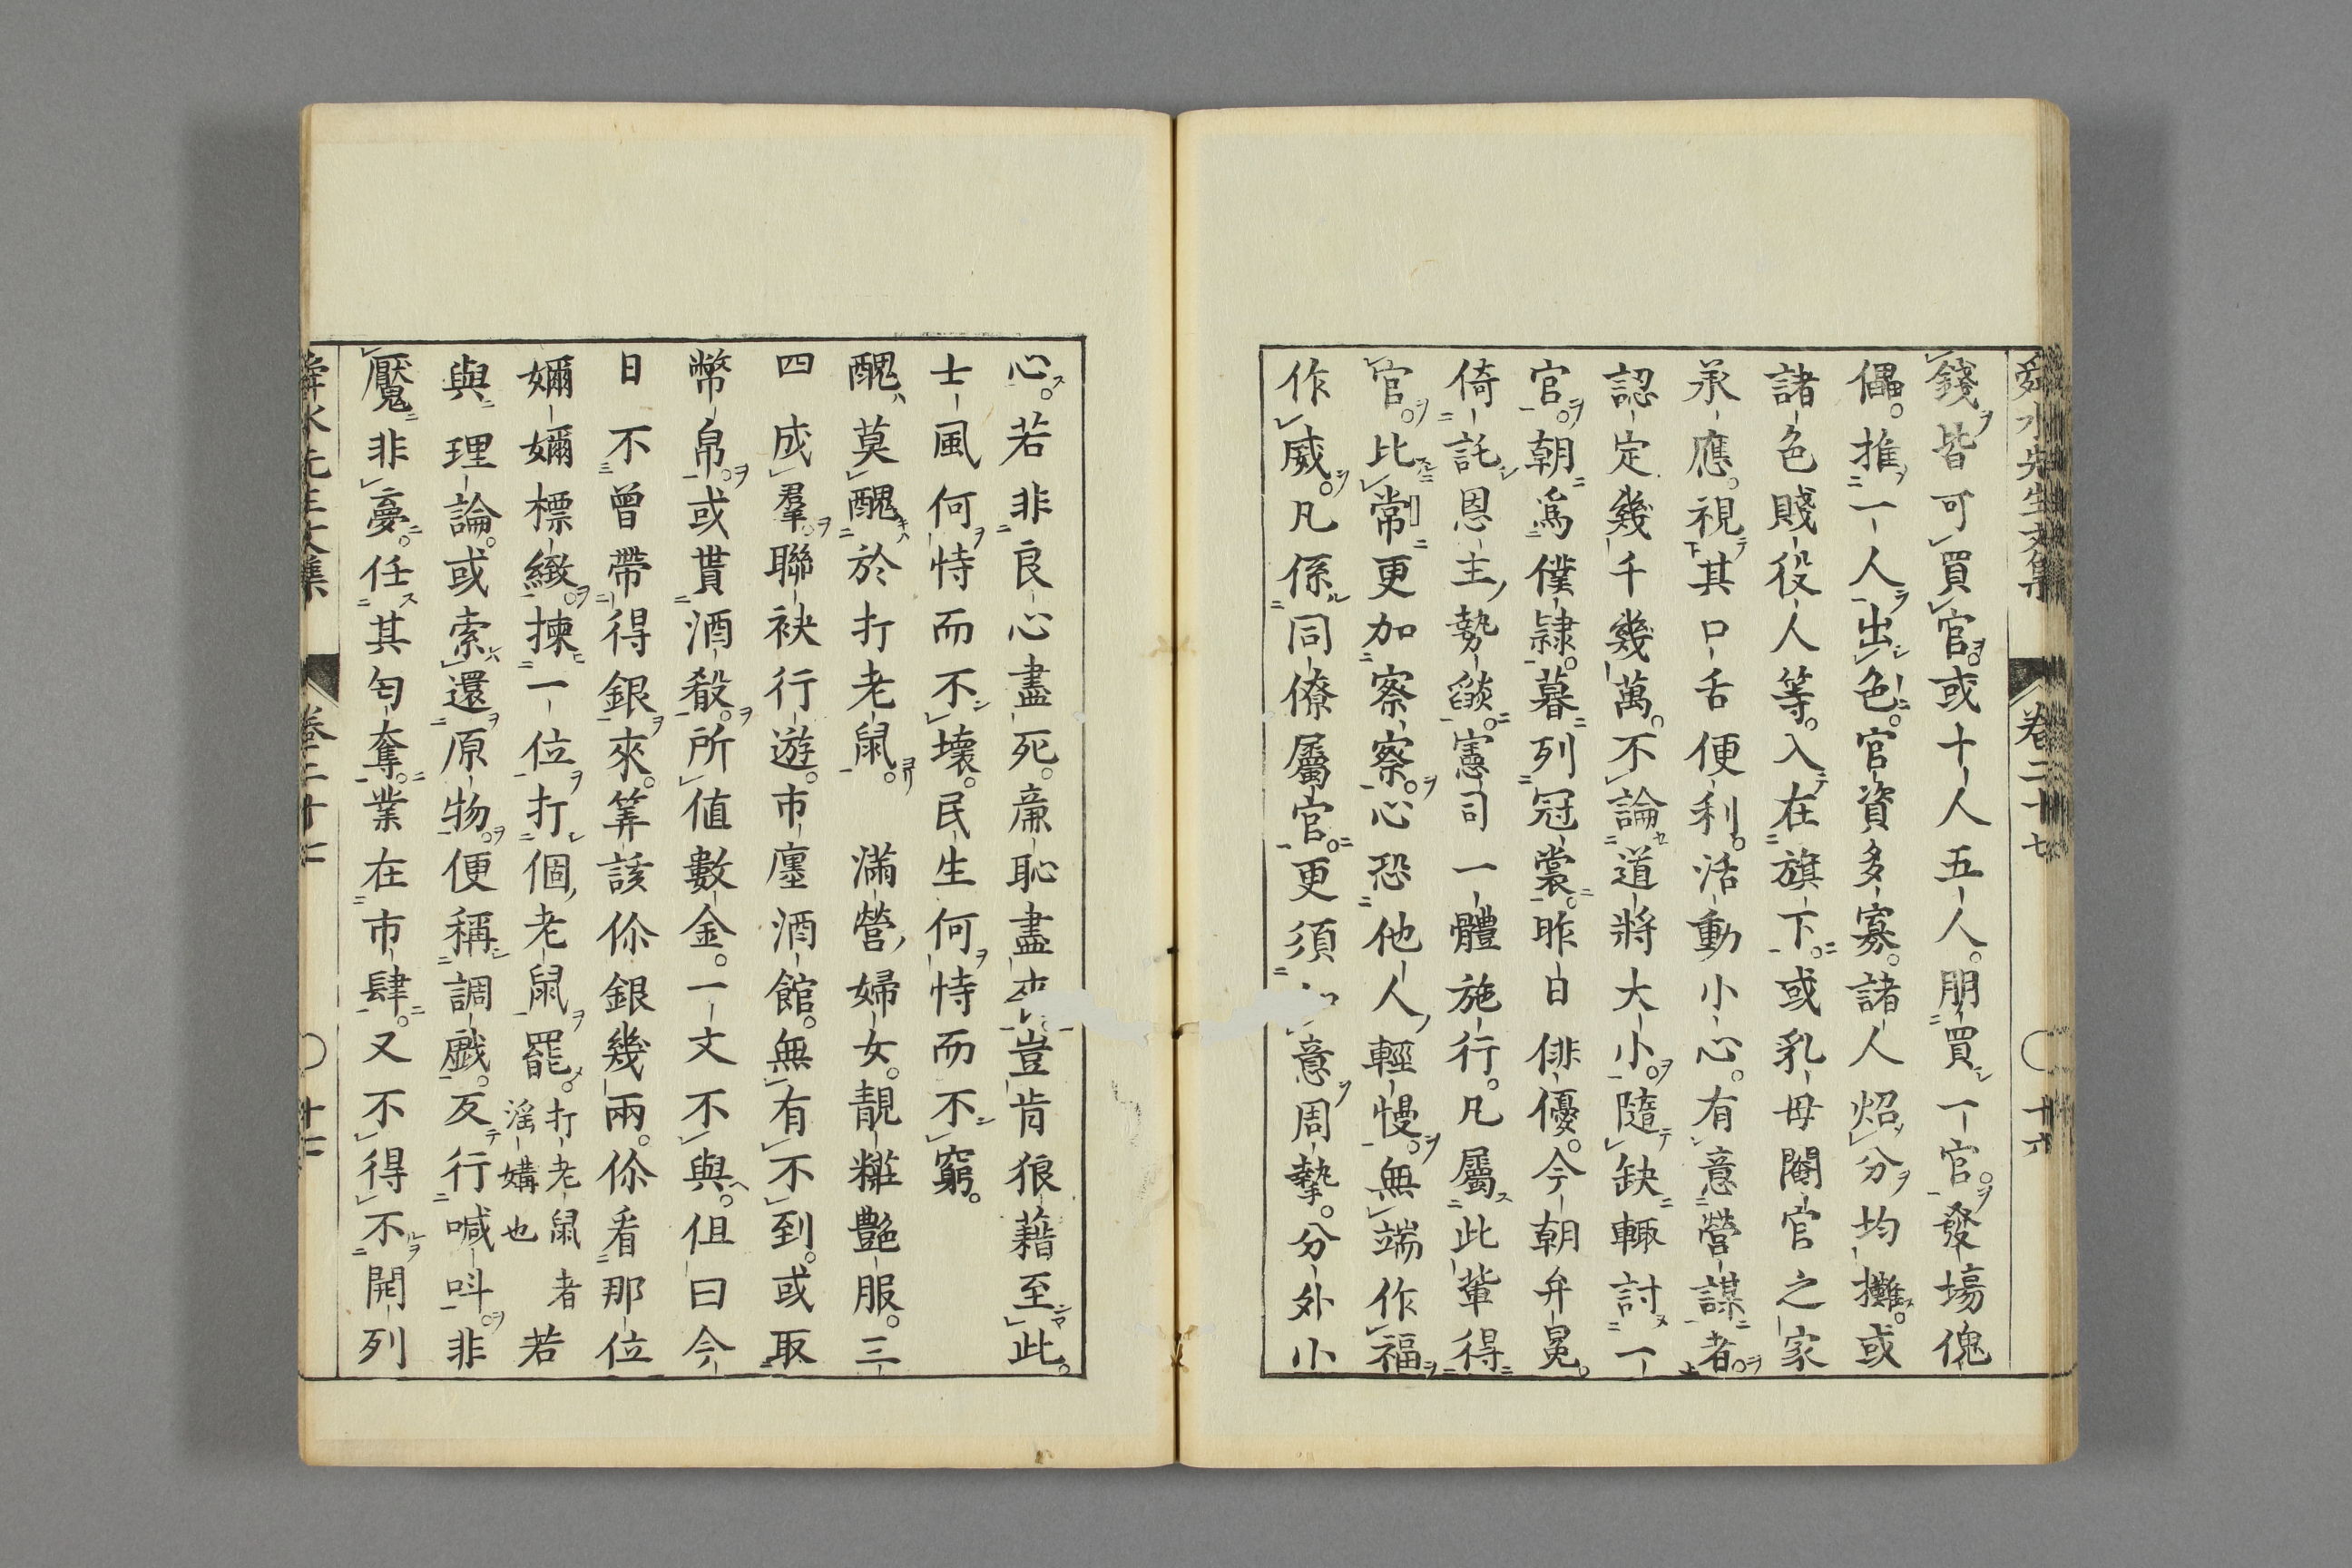 舜水先生文集 卷二十七 〇 十六
錢皆可買官或十人五人。朋買一官。發塲傀
儡。推一人出色。官資多寡。諸人炤分均攤。或
諸色賤役人等。入在旗下。或乳母閹官之家
承應。視其口舌便利。活動小心。有意營謀者。
認定幾千幾萬。不論道將大小。隨缺輒討一
官。朝爲僕隷。暮列冠裳。昨日俳優。今朝弁冕。
倚託恩主勢燄。憲司一體施行。凡屬此輩得
官。比常更加察察。心恐他人輕慢。無端作福
作威。凡係同僚屬官。更須 意周摯。分外小
心。若非良心盡死。廉恥盡 豈肯狼藉至此。
士風何恃而不壞。民生何恃而不窮。
醜莫醜於打老鼠。 滿營婦女。靚糚艷服。三
四成羣。聯袂行遊。市廛酒館。無有不到。或取
幣帛。或貰酒殽。所値數金。一文不與。伹曰今
日不曾帶得銀來。筭該伱銀幾兩。伱看那位
嬭嬭標緻。揀一位打個老鼠罷。打老鼠者淫媾也若
與理論。或索還原物。便稱調戲。反行喊呌。非
魘非夢。任其匄奪。業在市肆。又不得不開列
舜水先生文集 卷二十七 〇 十七